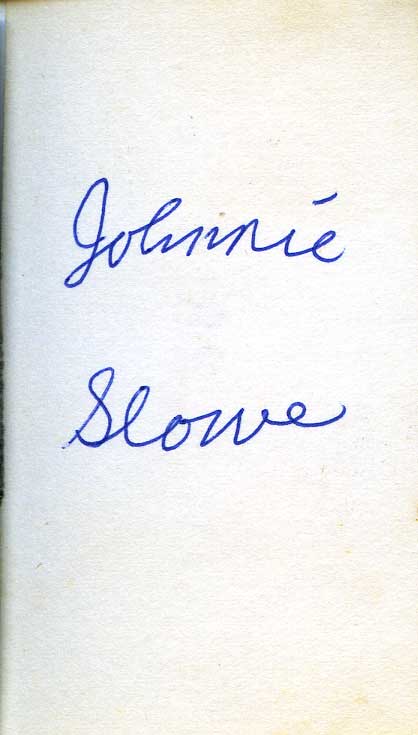 Johnnie
Slowe